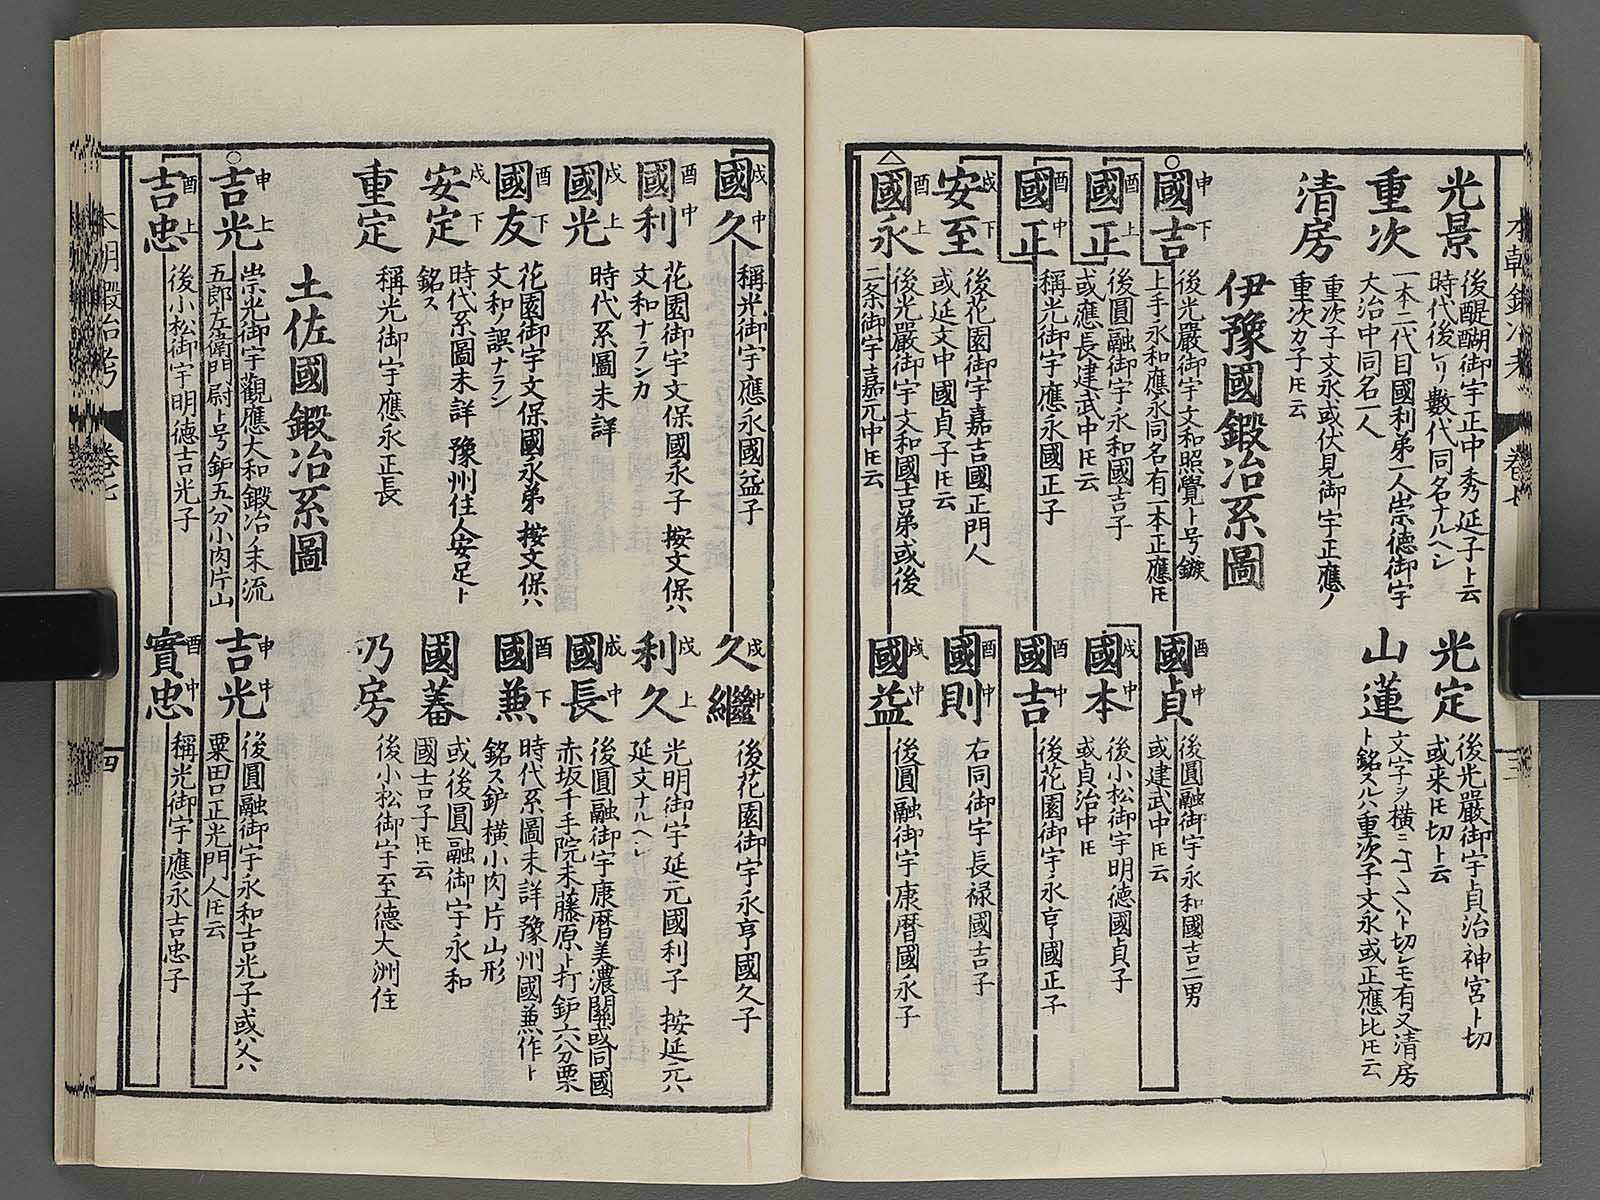 光景
後醍醐御宇正中秀延子ト云
時代後レリ數代同名ナルヘシ
光定
後光嚴御宇貞治神宮ト切
或来𪜈切ト云
重次
一本二代目國利弟一人崇徳御宇
大治中同名一人
山蓮
文字ヲ横ニ
ト切レモ有又清房
ト銘スルハ重次子文永或正應比𪜈云
清房
重次子文永或伏見御宇正應ノ
重次カ子𪜈云
伊豫國鍛冶系圖
申 國吉 下
後光嚴御宇文和照覺ト号鏃
上手永和應永同名有一本正應𪜈
酉 國貞 中
後圓融御宇永和國吉二男
或建武中𪜈云
酉 國正 上
後圓融御宇永和國吉子
或應長建武中𪜈云
戌 國本 中
後小松御宇明德國貞子
或貞治中𪜈
酉 國正 中
稱光御宇應永國正子
酉 國吉 中
後花園御宇永亨國正子
戌 安至 下
後花園御宇嘉吉國正門人
或延文中國貞子𪜈云
酉 國則 中
右同御宇長禄國吉子
酉 國永 上
後光嚴御宇文和國吉弟或後
二条御宇嘉元中𪜈云
戌 國益 中
後圓融御宇康暦國永子
本朝鍛冶考 卷七 三
戌 國久 中
稱光御宇應永國益子
戌 久繼 中
後花園御宇永亨國久子
酉 國利 中
花園御宇文保國永子 按文保ハ
文和ナランカ
戌 利久 上
光明御宇延元國利子 按延元ハ
延文ナルヘシ
戌 國光 上
時代系圖未詳
戌 國長 中
後圓融御宇康暦美濃關或同國
赤坂千手院末藤原ト打鈩六分栗
酉 國友 下
花園御宇文保國永弟 按文保ハ
文和ノ誤ナラン
酉 國兼 下
時代系圖未詳 豫州國兼作ト
銘ス鈩横小肉片山形
戌 安定 下
時代系圖未詳 豫州住人安足ト
銘ス
國蕃
或後圓融御宇永和
國吉子𪜈云
重定
稱光御宇應永正長
乃房
後小松御宇至德大洲住
土佐國鍛冶系圖
申 吉光 上
崇光御宇觀應大和鍛冶ノ末流
五郎左衛門尉ト号鈩五分小肉片山
申 吉光 中
後圓融御宇永和吉光子或父ハ
粟田口正光門人𪜈云
酉 吉忠 上
後小松御宇明德吉光子
酉 實忠 中
稱光御宇應永吉忠子
本朝鍛冶考 卷七 四